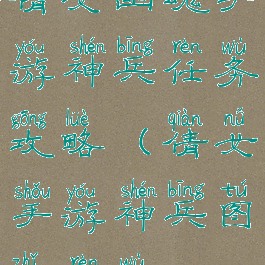 倩女幽魂手
yóu shén bīng rèn wù
游神兵任务
gōng lüè qiàn nǚ
攻略(倩女
shǒu yóu shén bīng tú
手游神兵图
rèn wù